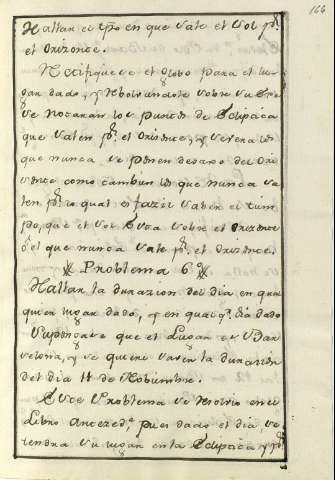 164
Hallar el tpo en que sale el Sol pr.
el Orizonte.
Rectifiquese el globo para el lu-
gar dado, y Mobiendole sobre su Exe
se notaran los puntos de Ecliptica
que salen pr. el Orizonte, y se vera los
que nunca se ponen debaxo del Ori
zonte como tambien los que nunca sa-
len, pr. lo qual es facil saber el tiem
po, que el Sol esta sobre el Orizonte
ò el que nunca sale pr. el Orizonte.
Problema 6º
Hallar la durazion del dia en qual
quier lugar dado, y en qualqr. dia dado
Supongase que el Lugar es Bar
zelona, y se quiere saver la durazion
del dia 11 de Nobiembre.
Este Problema se resolvio en el
Libro Anteced.e pues dado el dia, se
tendra su lugar en la Ecliptica y pr.